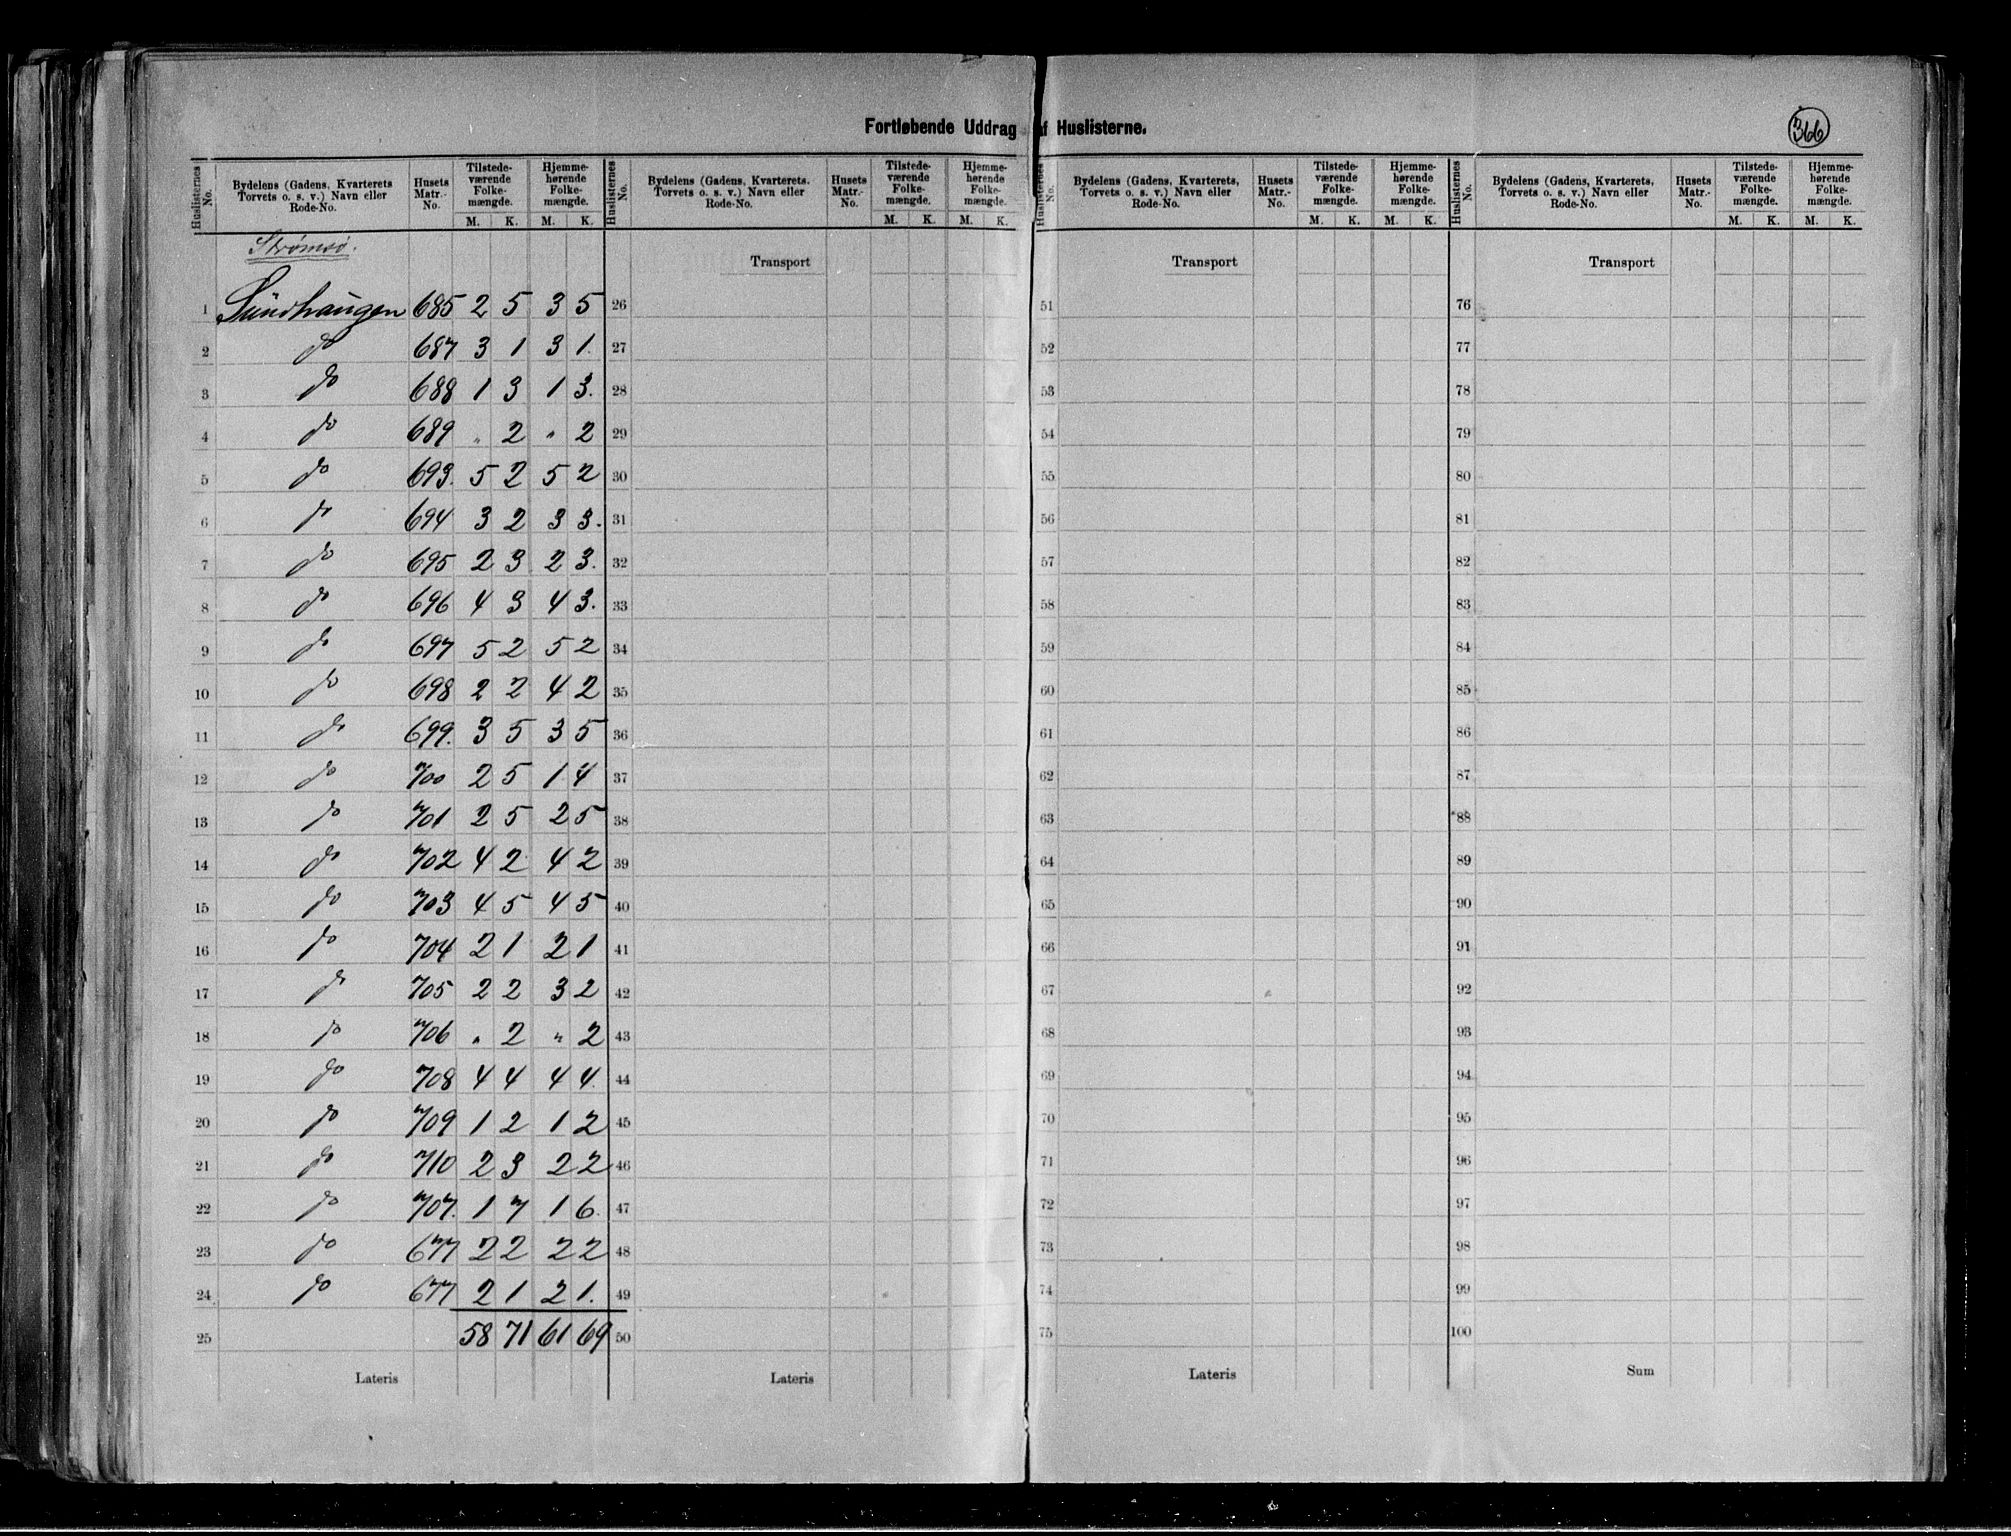 Fortløbende Uddrag af Huslisterne.
366
Huslisternes No. | Bydelens (Gadens, Kvarterets Torvets o. s. v.) Navn eller Rode-No. | Husets Matr.-No. | Tilstedeværende Folkemængde. M. K. | Hjemmehørende Folkemængde. M. K.
Strømsø.
1 Sundhaugen 685 2 5 3 5
2 do 687 3 1 3 1.
3 do 688 1 3 1 3.
4 do 689 " 2 " 2
5 do 693. 5 2 5 2
6 do 694 3 2 3 3.
7 do 695 2 3 2 3.
8 do 696 4 3 4 3.
9 do 697 5 2 5 2
10 do 698 2 2 4 2
11 do 699. 3 5 3 5
12 do 700 2 5 1 4
13 do 701 2 5 2 5
14 do 702 4 2 4 2
15 do 703 4 5 4 5
16 do 704 2 1 2 1
17 do 705 2 2 3 2
18 do 706 " 2 " 2
19 do 708 4 4 4 4.
20 do 709 1 2 1 2
21 do 710 2 3 2 2
22 do 707. 1 7 1 6.
23 do 677 2 2 2 2
24 do 677 2 1 2 1.
25 58 71 61 69
Lateris
Huslisternes No. | Bydelens (Gadens, Kvarterets, Torvets o. s. v.) Navn eller Rode-No. | Husets Matr.-No. | Tilstedeværende Folkemængde. M. K. | Hjemmehørende Folkemængde. M. K.
Transport
26
27
28
29
30
31
32
33
34
35
36
37
38
39
40
41
42
43
44
45
46
47
48
49
50
Lateris
Huslisternes No. | Bydelens (Gadens, Kvarterets, Torvets o. s. v.) Navn eller Rode-No. | Husets Matr.-No. | Tilstedeværende Folkemængde. M. K. | Hjemmehørende Folkemængde. M. K.
Transport
51
52
53
54
55
56
57
58
59
60
61
62
63
64
65
66
67
68
69
70
71
72
73
74
75
Lateris
Huslisternes No. | Bydelens (Gadens, Kvarterets, Torvets o. s. v.) Navn eller Rode-No. | Husets Matr.-No. | Tilstedeværende Folkemængde. M. K. | Hjemmehørende Folkemængde. M. K.
Transport
76
77
78
79
80
81
82
83
84
85
86
87
88
89
90
91
92
93
94
95
96
97
98
99
100
Sum